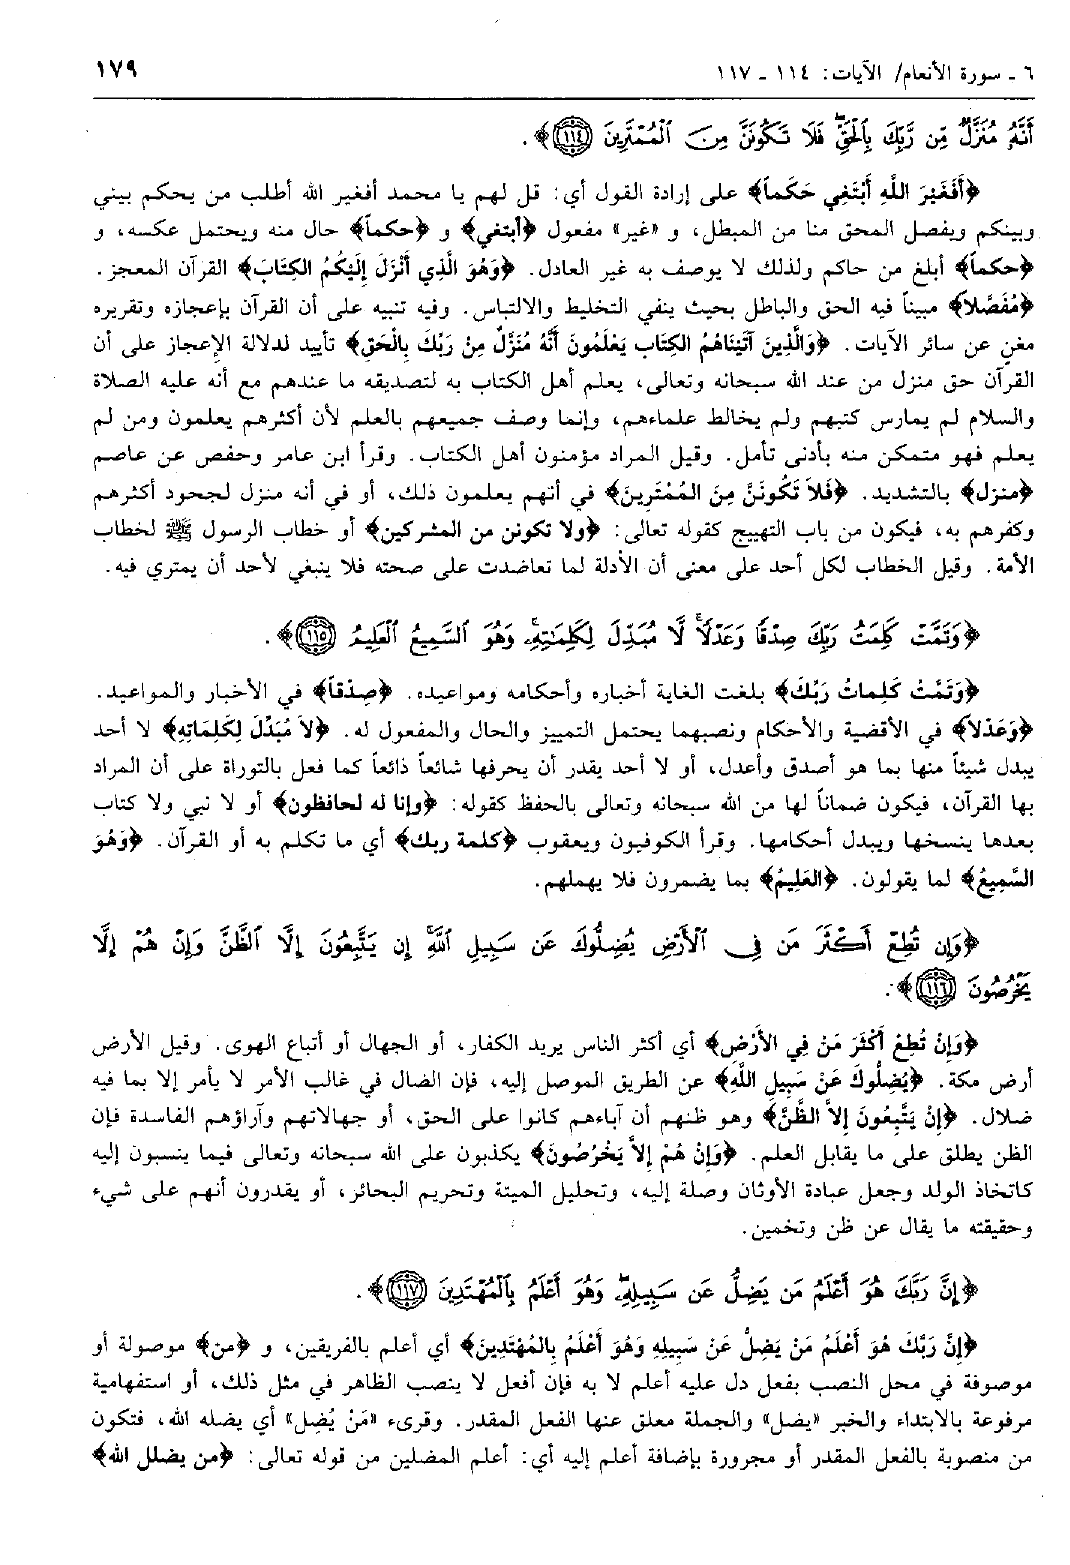 ٦ ـ سورة الأنعام/ الآيات: ١١٤ ـ ١١٧
١٧٩
أَنَّهُ مُنَزَّلٌ مِّن رَّبِّكَ بِالْحَقِّ فَلَا تَكُونَنَّ مِنَ الْمُمْتَرِينَ ﴿١١٤﴾﴾.
﴿أَفَغَيْرَ اللَّهِ أَبْتَغِي حَكَماً﴾ على إرادة القول أي: قل لهم يا محمد أفغير الله أطلب من يحكم بيني
وبينكم ويفصل المحق منا من المبطل، و «غير» مفعول ﴿أبتغي﴾ و ﴿حكماً﴾ حال منه ويحتمل عكسه، و
﴿حكماً﴾ أبلغ من حاكم ولذلك لا يوصف به غير العادل. ﴿وَهُوَ الَّذِي أَنْزَلَ إِلَيْكُمُ الكِتَابَ﴾ القرآن المعجز.
﴿مُفَصَّلاً﴾ مبيناً فيه الحق والباطل بحيث ينفي التخليط والالتباس. وفيه تنبيه على أن القرآن بإعجازه وتقريره
مغن عن سائر الآيات. ﴿وَالَّذِينَ آتَيْنَاهُمُ الكِتَاب يَعْلَمُونَ أَنَّهُ مُنَزَّلٌ مِنْ رَبِّكَ بِالْحَقِ﴾ تأييد لدلالة الإعجاز على أن
القرآن حق منزل من عند الله سبحانه وتعالى، يعلم أهل الكتاب به لتصديقه ما عندهم مع أنه عليه الصلاة
والسلام لم يمارس كتبهم ولم يخالط علماءهم، وإنما وصف جميعهم بالعلم لأن أكثرهم يعلمون ومن لم
يعلم فهو متمكن منه بأدنى تأمل. وقيل المراد مؤمنون أهل الكتاب. وقرأ ابن عامر وحفص عن عاصم
﴿منزل﴾ بالتشديد. ﴿فَلاَ تَكُونَنَّ مِنَ المُمْتَرِينَ﴾ في أنهم يعلمون ذلك، أو في أنه منزل لجحود أكثرهم
وكفرهم به، فيكون من باب التهييج كقوله تعالى: ﴿ولا تكونن من المشركين﴾ أو خطاب الرسول ﷺ لخطاب
الأمة. وقيل الخطاب لكل أحد على معنى أن الأدلة لما تعاضدت على صحته فلا ينبغي لأحد أن يمتري فيه.
﴿وَتَمَّتْ كَلِمَتُ رَبِّكَ صِدْقًا وَعَدْلًا لَّا مُبَدِّلَ لِكَلِمَاتِهِ وَهُوَ السَّمِيعُ الْعَلِيمُ ﴿١١٥﴾﴾.
﴿وَتَمَّتْ كَلِمَاتُ رَبُّكَ﴾ بلغت الغاية أخباره وأحكامه ومواعيده. ﴿صِدْقاً﴾ في الأخبار والمواعيد.
﴿وَعَدْلاً﴾ في الأقضية والأحكام ونصبهما يحتمل التمييز والحال والمفعول له. ﴿لاَ مُبَدِّلَ لِكَلِمَاتِهِ﴾ لا أحد
يبدل شيئاً منها بما هو أصدق وأعدل، أو لا أحد يقدر أن يحرفها شائعاً ذائعاً كما فعل بالتوراة على أن المراد
بها القرآن، فيكون ضماناً لها من الله سبحانه وتعالى بالحفظ كقوله: ﴿وإنا له لحافظون﴾ أو لا نبي ولا كتاب
بعدها ينسخها ويبدل أحكامها. وقرأ الكوفيون ويعقوب ﴿كلمة ربك﴾ أي ما تكلم به أو القرآن. ﴿وَهُوَ
السَّمِيعُ﴾ لما يقولون. ﴿العَلِيمُ﴾ بما يضمرون فلا يهملهم.
﴿وَإِن تُطِعْ أَكْثَرَ مَن فِي الْأَرْضِ يُضِلُّوكَ عَن سَبِيلِ اللَّهِ إِن يَتَّبِعُونَ إِلَّا الظَّنَّ وَإِنْ هُمْ إِلَّا
يَخْرُصُونَ ﴿١١٦﴾﴾.
﴿وَإِنْ تُطِعْ أَكْثَرَ مَنْ فِي الأَرْضِ﴾ أي أكثر الناس يريد الكفار، أو الجهال أو أتباع الهوى. وقيل الأرض
أرض مكة. ﴿يُضِلُّوكَ عَنْ سَبِيلِ اللَّهِ﴾ عن الطريق الموصل إليه، فإن الضال في غالب الأمر لا يأمر إلا بما فيه
ضلال. ﴿إِنْ يَتَّبِعُونَ إِلاَّ الظَّنَّ﴾ وهو ظنهم أن آباءهم كانوا على الحق، أو جهالاتهم وآراؤهم الفاسدة فإن
الظن يطلق على ما يقابل العلم. ﴿وَإِنْ هُمْ إِلاَّ يَخْرُصُونَ﴾ يكذبون على الله سبحانه وتعالى فيما ينسبون إليه
كاتخاذ الولد وجعل عبادة الأوثان وصلة إليه، وتحليل الميتة وتحريم البحائر، أو يقدرون أنهم على شيء
وحقيقته ما يقال عن ظن وتخمين.
﴿إِنَّ رَبَّكَ هُوَ أَعْلَمُ مَن يَضِلُّ عَن سَبِيلِهِ وَهُوَ أَعْلَمُ بِالْمُهْتَدِينَ ﴿١١٧﴾﴾.
﴿إِنَّ رَبَّكَ هُوَ أَعْلَمُ مَنْ يَضِلُ عَنْ سَبِيلِهِ وَهُوَ أَعْلَمُ بِالمُهْتَدِينَ﴾ أي أعلم بالفريقين، و ﴿من﴾ موصولة أو
موصوفة في محل النصب بفعل دل عليه أعلم لا به فإن أفعل لا ينصب الظاهر في مثل ذلك، أو استفهامية
مرفوعة بالابتداء والخبر «يضل» والجملة معلق عنها الفعل المقدر. وقرىء «مَنْ يُضِل» أي يضله الله، فتكون
من منصوبة بالفعل المقدر أو مجرورة بإضافة أعلم إليه أي: أعلم المضلين من قوله تعالى: ﴿من يضلل الله﴾